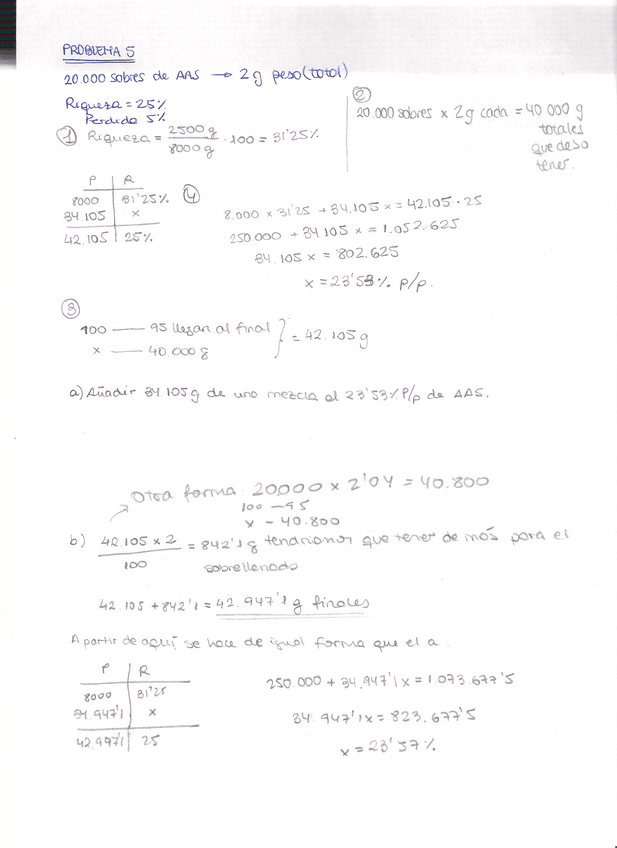 PROBLEMA 5
20.000 sobres de AAS → 2 g peso (total)
Riqueza = 25%
Perdida 5%
① Riqueza = 2500 g / 8000 g · 100 = 31'25%
②
20.000 sobres x 2g cada = 40 000 g
totales
que deseo
tener.
P | R
8000 | 31'25%
34 105 | x
42.105 | 25%
④
8.000 x 31'25 + 34.105 x = 42.105 · 25
250 000 + 34 105 x = 1.052.625
34.105 x = 802.625
x = 23'53% p/p.
③
100 — 95 llegan al final
x — 40.000 g
} = 42.105 g
a) Añadir 34.105 g de una mezcla al 23'53% P/p de AAS.
Otra forma 20000 x 2'04 = 40.800
100 - 95
x - 40.800
b) 42.105 x 2 / 100 = 842'1 g tendriamos que tener de más para el
sobrellenado
42.105 + 842'1 = 42.947'1 g finales
A partir de aquí se hace de igual forma que el a.
P | R
8000 | 31'25
34.947'1 | x
42.947'1 | 25
250.000 + 34.947'1 x = 1.073.677'5
34.947'1 x = 823.677'5
x = 23'57%